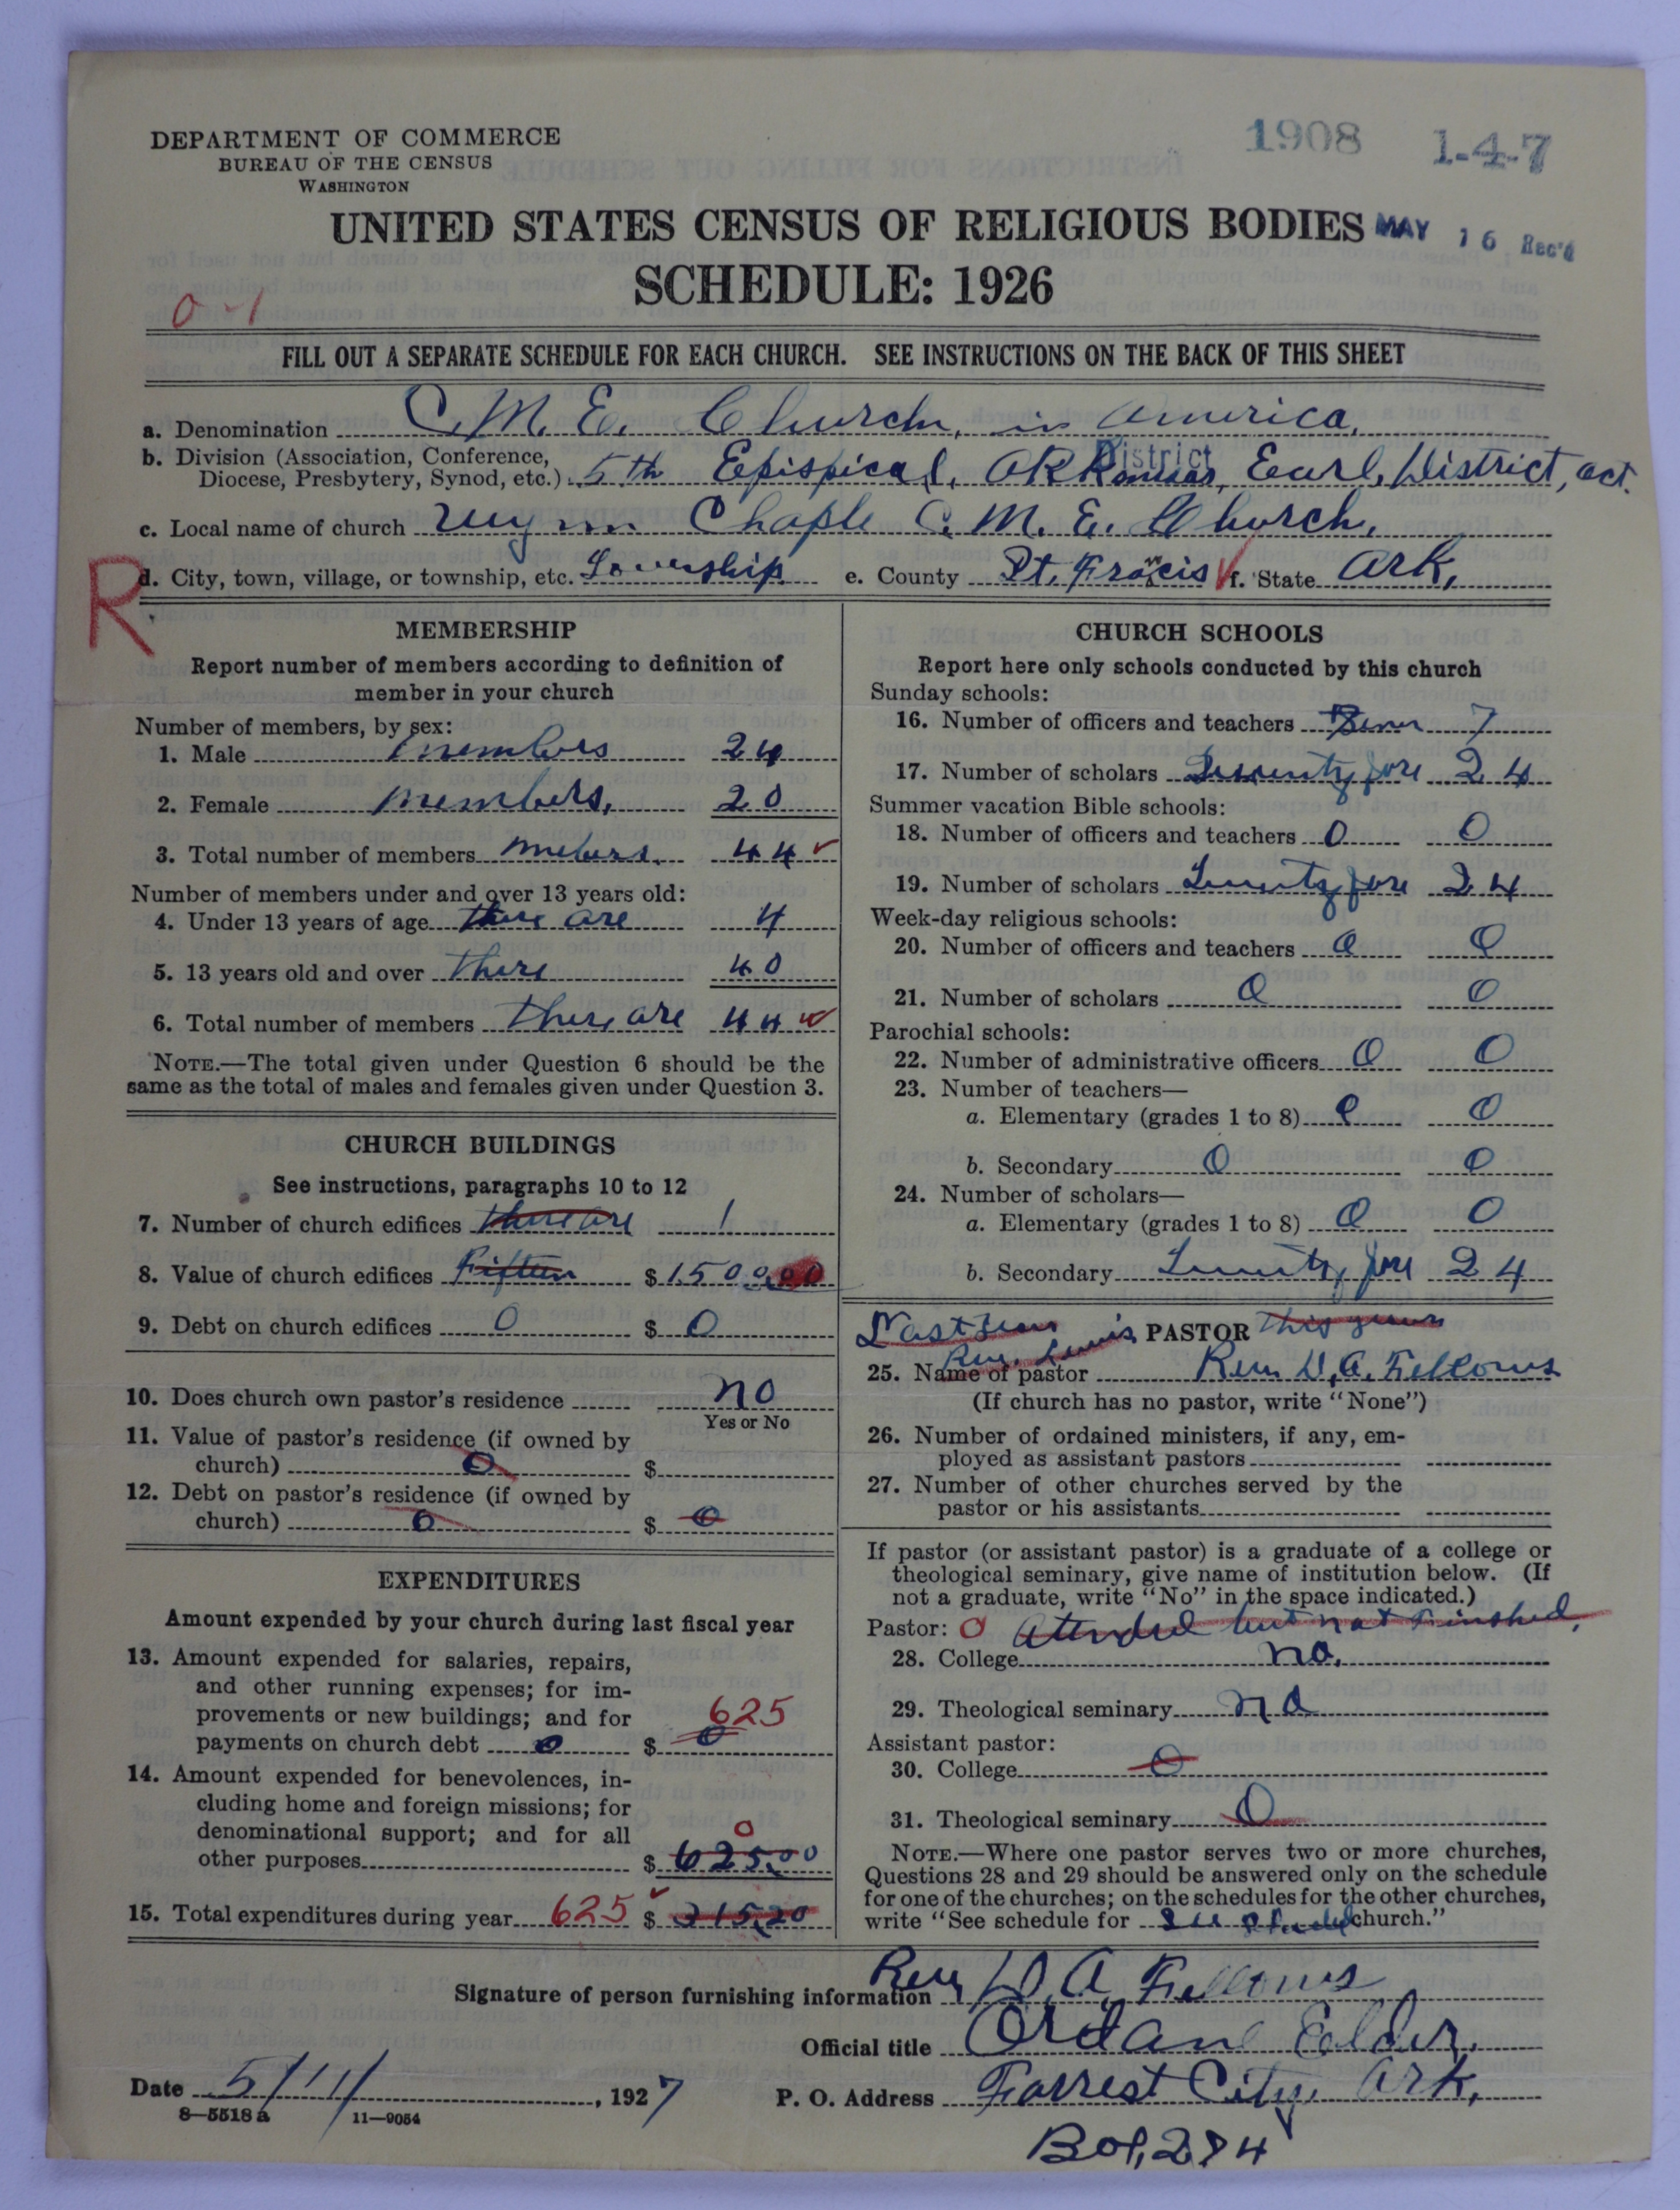 1908 1-4-7
DEPARTMENT OF COMMERCE
BUREAU OF THE CENSUS
WASHINGTON
UNITED STATES CENSUS OF RELIGIOUS BODIES
MAY 16 Rec'd
SCHEDULE: 1926
0-1
FILL OUT A SEPARATE SCHEDULE FOR EACH CHURCH. SEE INSTRUCTIONS ON THE BACK OF THIS SHEET
a. Denomination C. M. E. Church, in America,
b. Division (Association, Conference,
Diocese, Presbytery, Synod, etc.) 5th Epispical, District Earl, District, act.
c. Local name of church Chaple C. M. E. Church,
R
d. City, town, village, or township, etc. Township e. County St. Francis f. State Ark,
MEMBERSHIP
Report number of members according to definition of
member in your church
Number of members, by sex:
1. Male members 24
2. Female members, 20
3. Total number of members 44
Number of members under and over 13 years old:
4. Under 13 years of age there are 4
5. 13 years old and over there 40
6. Total number of members there are 44
NOTE.—The total given under Question 6 should be the
same as the total of males and females given under Question 3.
CHURCH BUILDINGS
See instructions, paragraphs 10 to 12
7. Number of church edifices there are 1
8. Value of church edifices Fifteen $1500.00
9. Debt on church edifices 0 $ 0
10. Does church own pastor's residence no
Yes or No
11. Value of pastor's residence (if owned by
church) 0 $
12. Debt on pastor's residence (if owned by
church) 0 $ 0
EXPENDITURES
Amount expended by your church during last fiscal year
13. Amount expended for salaries, repairs,
and other running expenses; for im-
provements or new buildings; and for 625
payments on church debt 0 $ 0
14. Amount expended for benevolences, in-
cluding home and foreign missions; for
denominational support; and for all 0
other purposes $ 625.00
15. Total expenditures during year 625 $ 315.20
CHURCH SCHOOLS
Report here only schools conducted by this church
Sunday schools:
16. Number of officers and teachers 7
17. Number of scholars 24
Summer vacation Bible schools:
18. Number of officers and teachers 0 0
19. Number of scholars 24
Week-day religious schools:
20. Number of officers and teachers 0 0
21. Number of scholars 0 0
Parochial schools:
22. Number of administrative officers 0 0
23. Number of teachers—
a. Elementary (grades 1 to 8) 0 0
b. Secondary 0 0
24. Number of scholars—
a. Elementary (grades 1 to 8) 0 0
b. Secondary 24
PASTOR
Rev. Lewis
25. Name of pastor Rev. W. A. Fellows
(If church has no pastor, write "None")
26. Number of ordained ministers, if any, em-
ployed as assistant pastors
27. Number of other churches served by the
pastor or his assistants
If pastor (or assistant pastor) is a graduate of a college or
theological seminary, give name of institution below. (If
not a graduate, write "No" in the space indicated.)
Pastor: 0 Attended but not Finshed,
28. College no.
29. Theological seminary no
Assistant pastor:
30. College 0
31. Theological seminary 0
NOTE.—Where one pastor serves two or more churches,
Questions 28 and 29 should be answered only on the schedule
for one of the churches; on the schedules for the other churches,
write "See schedule for church."
Signature of person furnishing information Rev W. A. Fellows
Official title Ordane Ealder.
Date 5/11/, 1927
P. O. Address Forrest City, Ark,
8—5518 a 11—9054